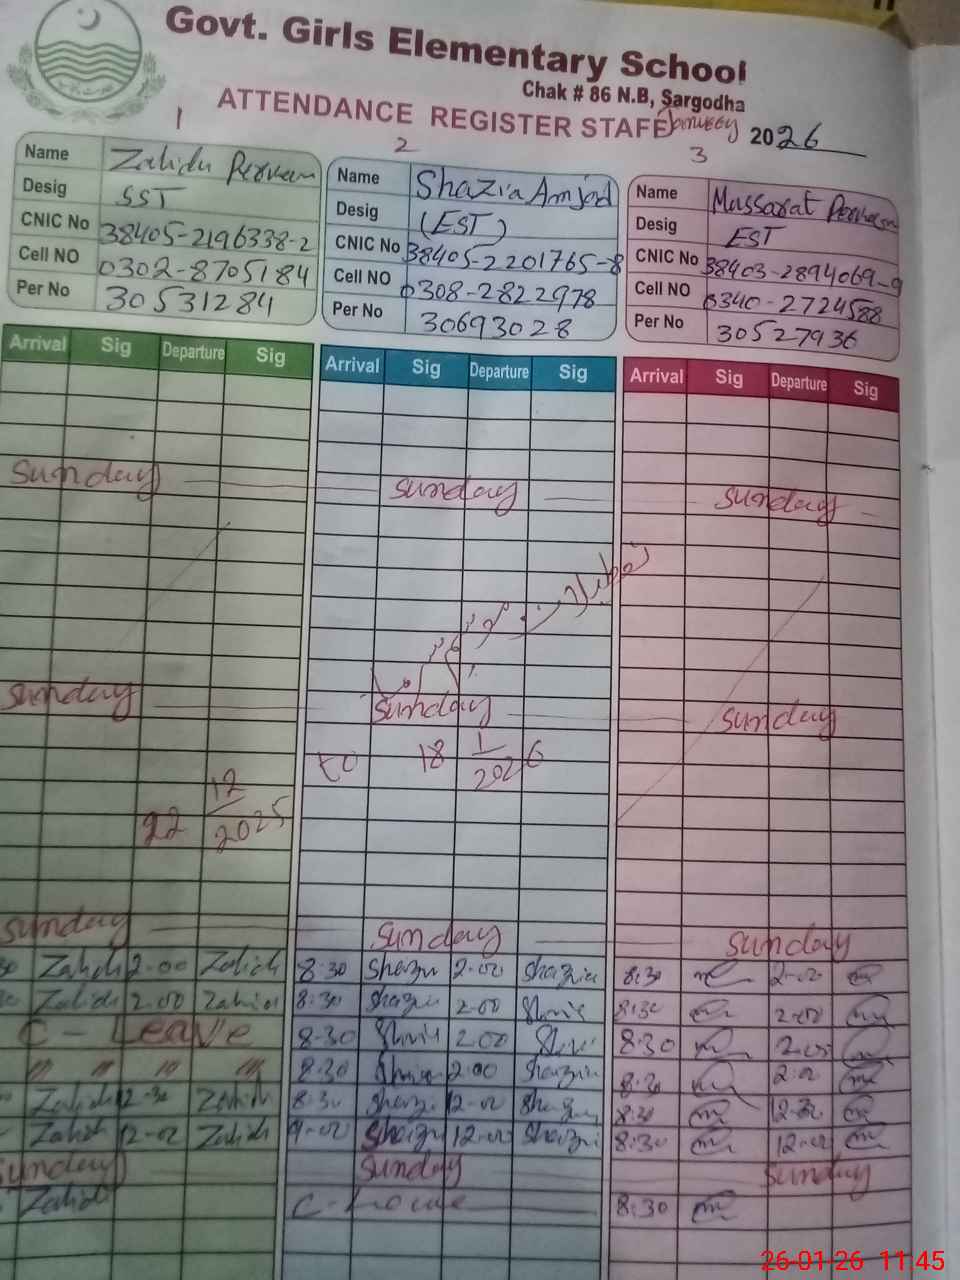 Govt. Girls Elementary School
Chak # 86 N.B, Sargodha
ATTENDANCE REGISTER STAFF 2026
1 2 3
Name Zahida Perveen
Desig SST
CNIC No 38405-2196338-2
Cell NO 0302-8705184
Per No 30531284
Name Shazia Amjad
Desig (EST)
CNIC No 38405-2201765-8
Cell NO 0308-2822978
Per No 30693028
Name Mussarat Perveen
Desig EST
CNIC No 38403-2894069-9
Cell NO 0340-2724588
Per No 30527936
Arrival Sig Departure Sig Arrival Sig Departure Sig Arrival Sig Departure Sig
Sunday Sunday Sunday
Sunday Sunday Sunday
22 12/2025 to 18 1/2026
Sunday Sunday Sunday
Zahid 2-00 Zahid 8:30 Shazia 2-00 Shazia 8:30 2-00
Zahid 2.00 Zahid 8:30 Shazia 2-00 8:30 2-00
C-Leave 8-30 2.00 8:30 2-00
" " " " 8:30 2-00 Shazia 8:30 2-0
Zahid 12-30 Zahid 8:30 Shazi 12-00 8:30 12-30
Zahid 12-00 Zahid 9-00 Shazia 12-00 Shazia 8:30 12-00
Sunday Sunday Sunday
Zahid C-Leave 8:30
26-01-26 11:45